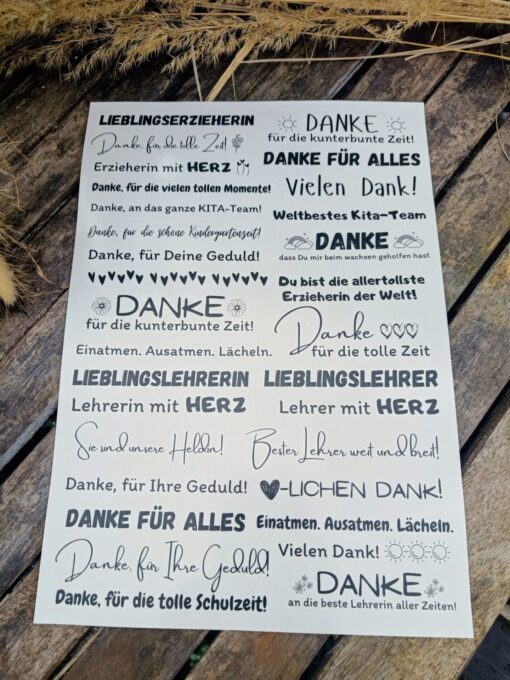 LIEBLINGSERZIEHERIN
DANKE
für die kunterbunte Zeit!
Danke, für die tolle Zeit!
Erzieherin mit HERZ
DANKE FÜR ALLES
Danke, für die vielen tollen Momente!
Vielen Dank!
Danke, an das ganze KITA-Team!
Weltbestes Kita-Team
Danke, für die schöne Kindergartenzeit!
DANKE
dass Du mir beim wachsen geholfen hast
Danke, für Deine Geduld!
Du bist die allertollste
Erzieherin der Welt!
DANKE
für die kunterbunte Zeit!
Danke
für die tolle Zeit
Einatmen. Ausatmen. Lächeln.
LIEBLINGSLEHRERIN
LIEBLINGSLEHRER
Lehrerin mit HERZ
Lehrer mit HERZ
Sie sind unsere Heldin!
Bester Lehrer weit und breit!
Danke, für Ihre Geduld!
-LICHEN DANK!
DANKE FÜR ALLES
Einatmen. Ausatmen. Lächeln.
Danke, für Ihre Geduld!
Vielen Dank!
DANKE
an die beste Lehrerin aller Zeiten!
Danke, für die tolle Schulzeit!